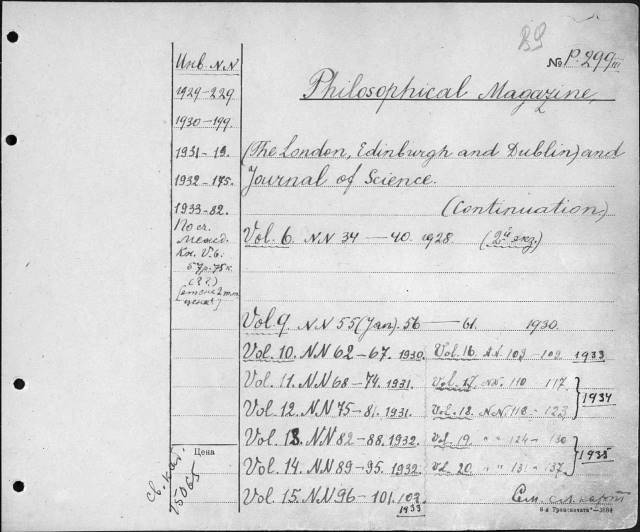 № P. 299 III
Инв. NN
1929-229
1930-199.
1931-19.
1932-175.
1933-82.
По сч.
Межд.
Кн. V.6.
57р.75к.
(??)
Philosophical Magazine,
(The London, Edinburgh and Dublin) and
Journal of Science.
(Continuation)
Vol. 6. NN 34 — 40. 1928. (2й экз.)
Vol. 9. NN 55 (Jan). 56 — 61. 1930.
Vol. 10. NN 62-67. 1930. Vol. 16. NN. 103 - 109. 1933
Vol. 11. NN 68-74. 1931. Vol. 17. NN. 110 117.
1934
Vol. 12. NN 75-81. 1931. Vol. 18. NN. 118 - 123
Vol. 13. NN 82-88. 1932. Vol. 19. " " 124 - 130
1935
Vol. 14. NN 89-95. 1932. Vol. 20 " " 131 - 137
Vol. 15. NN 96-101. 102.
1933
Цена
св. кат.
15065